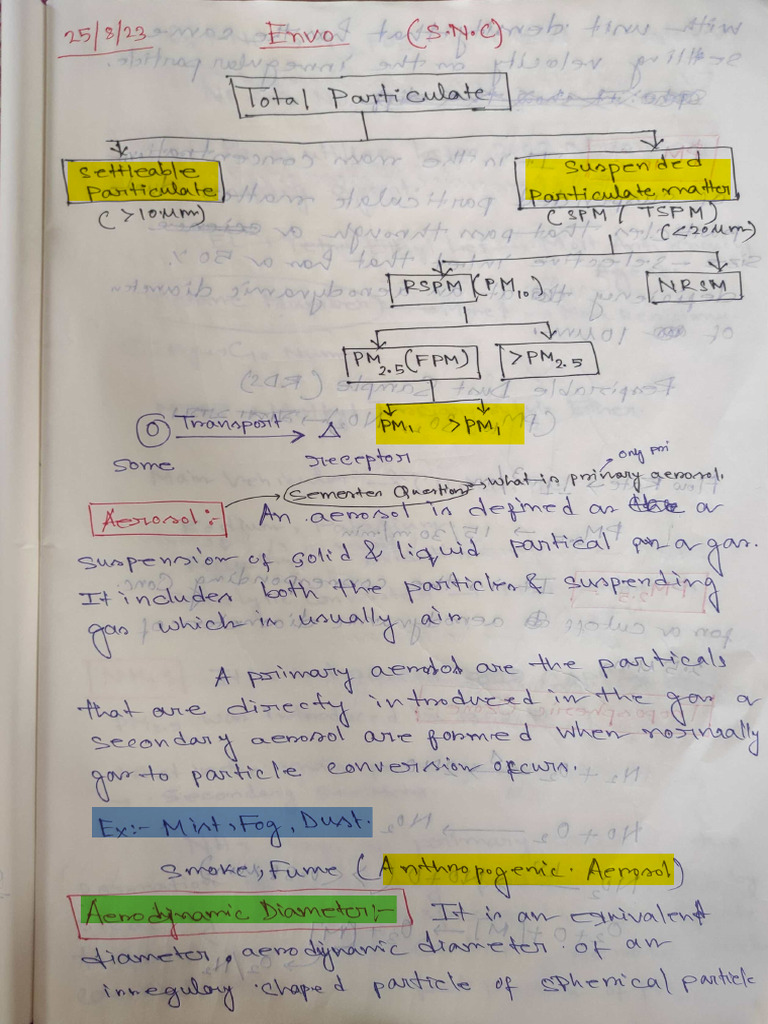 25/8/23 Envo (S.N.C)
Total Particulate
Settleable Particulate
(>10μm)
Suspended
Particulate matter
(SPM / TSPM)
(<20μm)
RSPM (PM10)
NRSM
PM2.5 (FPM)
>PM2.5
PM1 >PM1
Transport
some
receptor
only pri
Sementer Question → what is primary aerosol.
Aerosol:- An aerosol is defined as a
suspension of solid & liquid partical on a gas.
It includes both the particles & suspending
gas which is usually air.
A primary aerosol are the particals
that are directy introduced in the gas a
secondary aerosol are formed when normally
gas to particle conversion occurs.
Ex:- Mist, Fog, Dust.
Smoke, Fume (Anthropogenic. Aerosol)
Aerodynamic Diameter:- It is an equivalent
diameter, aerodynamic diameter of an
irregulory shaped particle of spherical particle